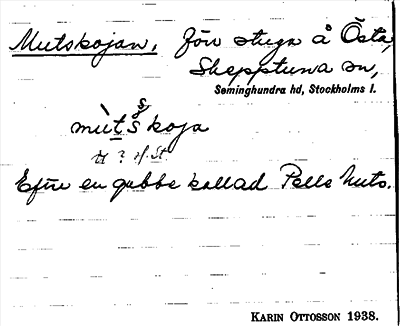 Mutskojan, förr stuga å Östa,
Skepptuna sn,
Seminghundra hd, Stockholms l.
mùtskoja
Efter en gubbe kallad Pelle Muts.
KARIN OTTOSSON 1938.